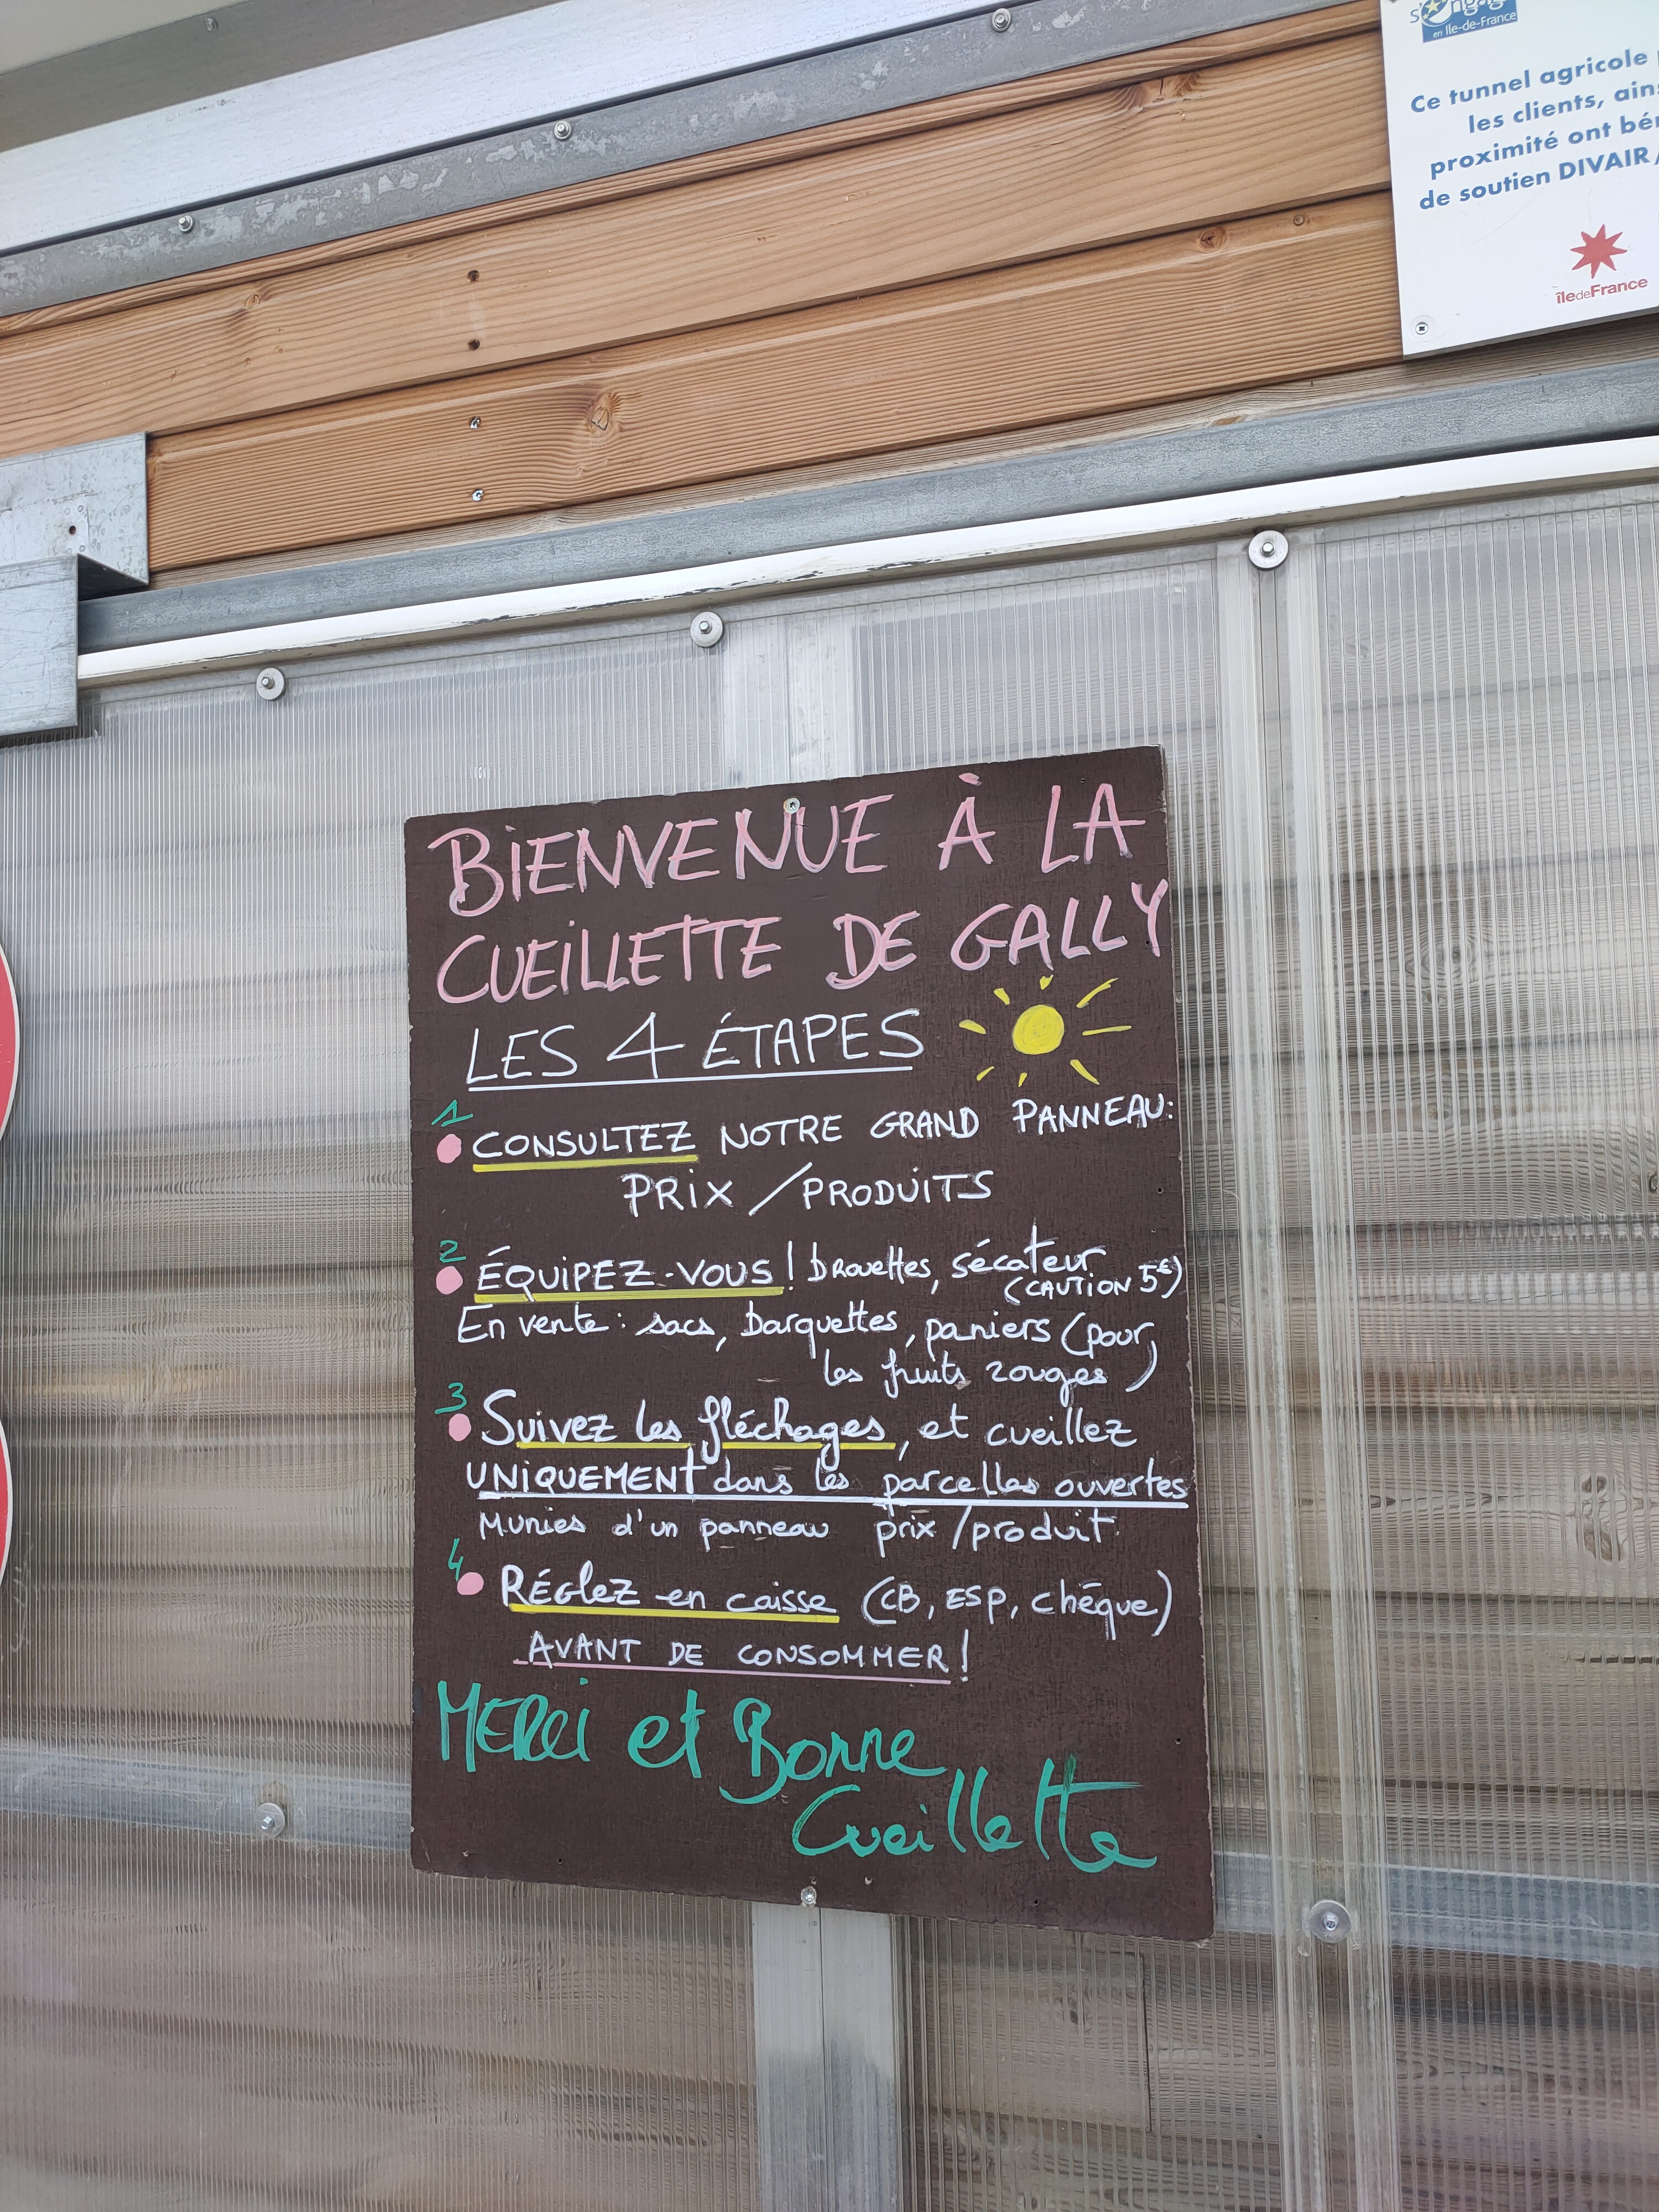 s'engage
en Île-de-France
Ce tunnel agricole
les clients,
proximité ont
de soutien DIVAIR/
îledeFrance
BiENVENUE À LA
CUEiLLETTE DE GALLY
LES 4 ÉTAPES
1
CONSULTEZ NOTRE GRAND PANNEAU:
PRiX / PRODUiTS
2
ÉQUiPEZ-VOUS! brouettes, sécateur
(CAUTiON 5€)
En vente : sacs, barquettes, paniers (pour
les fruits rouges)
3
Suivez les fléchages, et cueillez
UNiQUEMENT dans les parcelles ouvertes
Munies d'un panneau prix/produit.
4
RÉGlEZ en caisse (CB, ESP, chèque)
AVANT DE CONSOMMER!
MERCi et Bonne
Cueillette